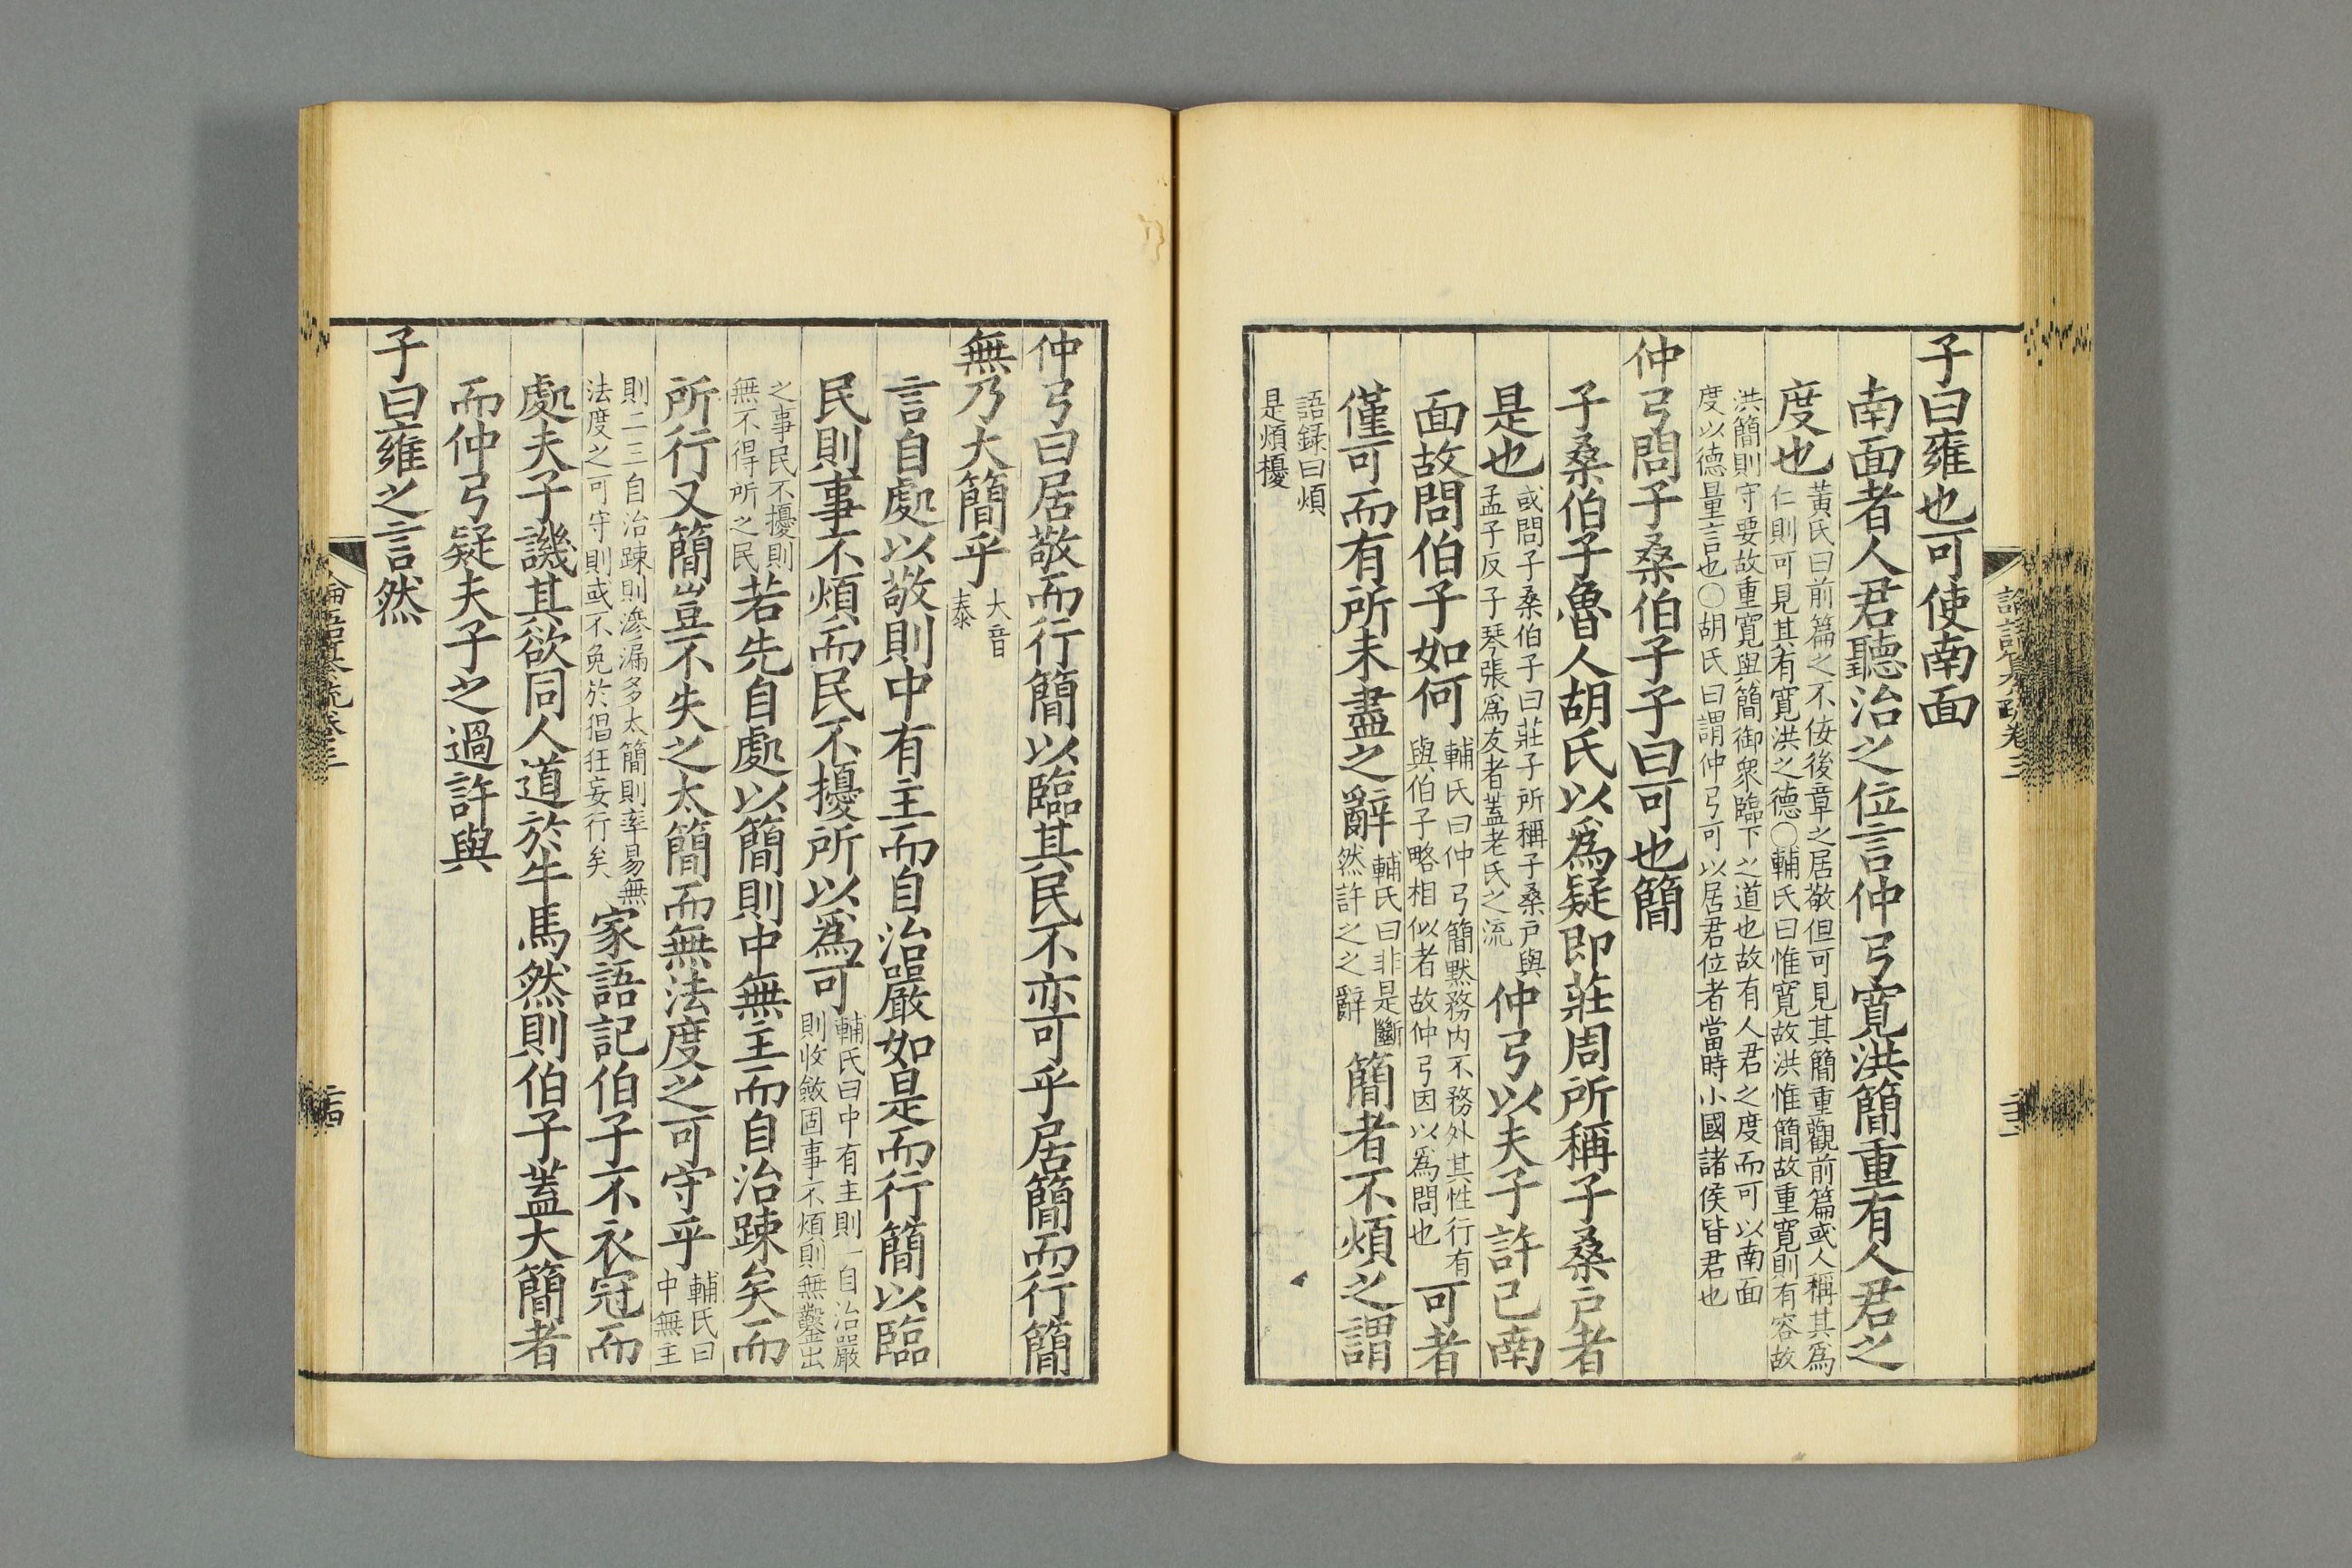 子曰雍也可使南面
南面者人君聽治之位言仲弓寬洪簡重有人君之
度也
黃氏曰前篇之不佞後章之居敬但可見其簡重觀前篇或人稱其爲
仁則可見其有寬洪之德〇輔氏曰惟寬故洪惟簡故重寬則有容故
洪簡則守要故重寬與簡御衆臨下之道也故有人君之度而可以南面
度以德量言也〇胡氏曰謂仲弓可以居君位者當時小國諸侯皆君也
仲弓問子桑伯子子曰可也簡
子桑伯子魯人胡氏以爲疑即莊周所稱子桑戶者
是也
或問子桑伯子曰莊子所稱子桑戶與
孟子反子琴張爲友者蓋老氏之流
仲弓以夫子許己南
面故問伯子如何
輔氏曰仲弓簡默務内不務外其性行有
與伯子略相似者故仲弓因以爲問也
可者
僅可而有所未盡之辭
輔氏曰非是斷
然許之之辭
簡者不煩之謂
語録曰煩
是煩擾
仲弓曰居敬而行簡以臨其民不亦可乎居簡而行簡
無乃大簡乎
大音
泰
言自處以敬則中有主而自治嚴如是而行簡以臨
民則事不煩而民不擾所以爲可
輔氏曰中有主則一自治嚴
則收斂固事不煩則無鑿出
之事民不擾則
無不得所之民
若先自處以簡則中無主而自治踈矣而
所行又簡豈不失之太簡而無法度之可守乎
輔氏曰
中無主
則二三自治踈則滲漏多太簡則率易無
法度之可守則或不免於猖狂妄行矣
家語記伯子不衣冠而
處夫子譏其欲同人道於牛馬然則伯子蓋大簡者
而仲弓疑夫子之過許與
子曰雍之言然
論語纂疏卷三